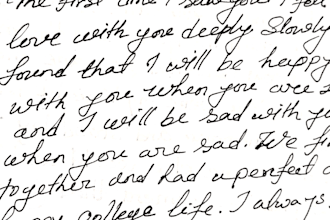 the first time I saw you I fell
love with you deeply. Slowly
found that I will be happy
with you when you are
and I will be sad with you
when you are sad. We
together and had a perfect
college life. I always